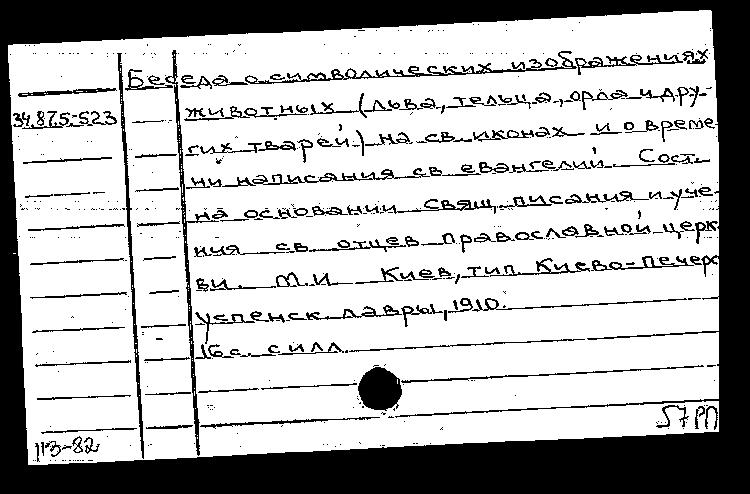 Беседа о символических изображениях
34.87.5-523 животных (льва, тельца, орла и дру-
гих тварей) на св. иконах и о време
ни написания св. евангелий. Сост.
на основании свящ. писания и уче-
ния св. отцев православной церк
ви. М.И Киев, тип. Киево-печерс
успенск. лавры, 1910.
16 с. с илл.
113-82
57 РП